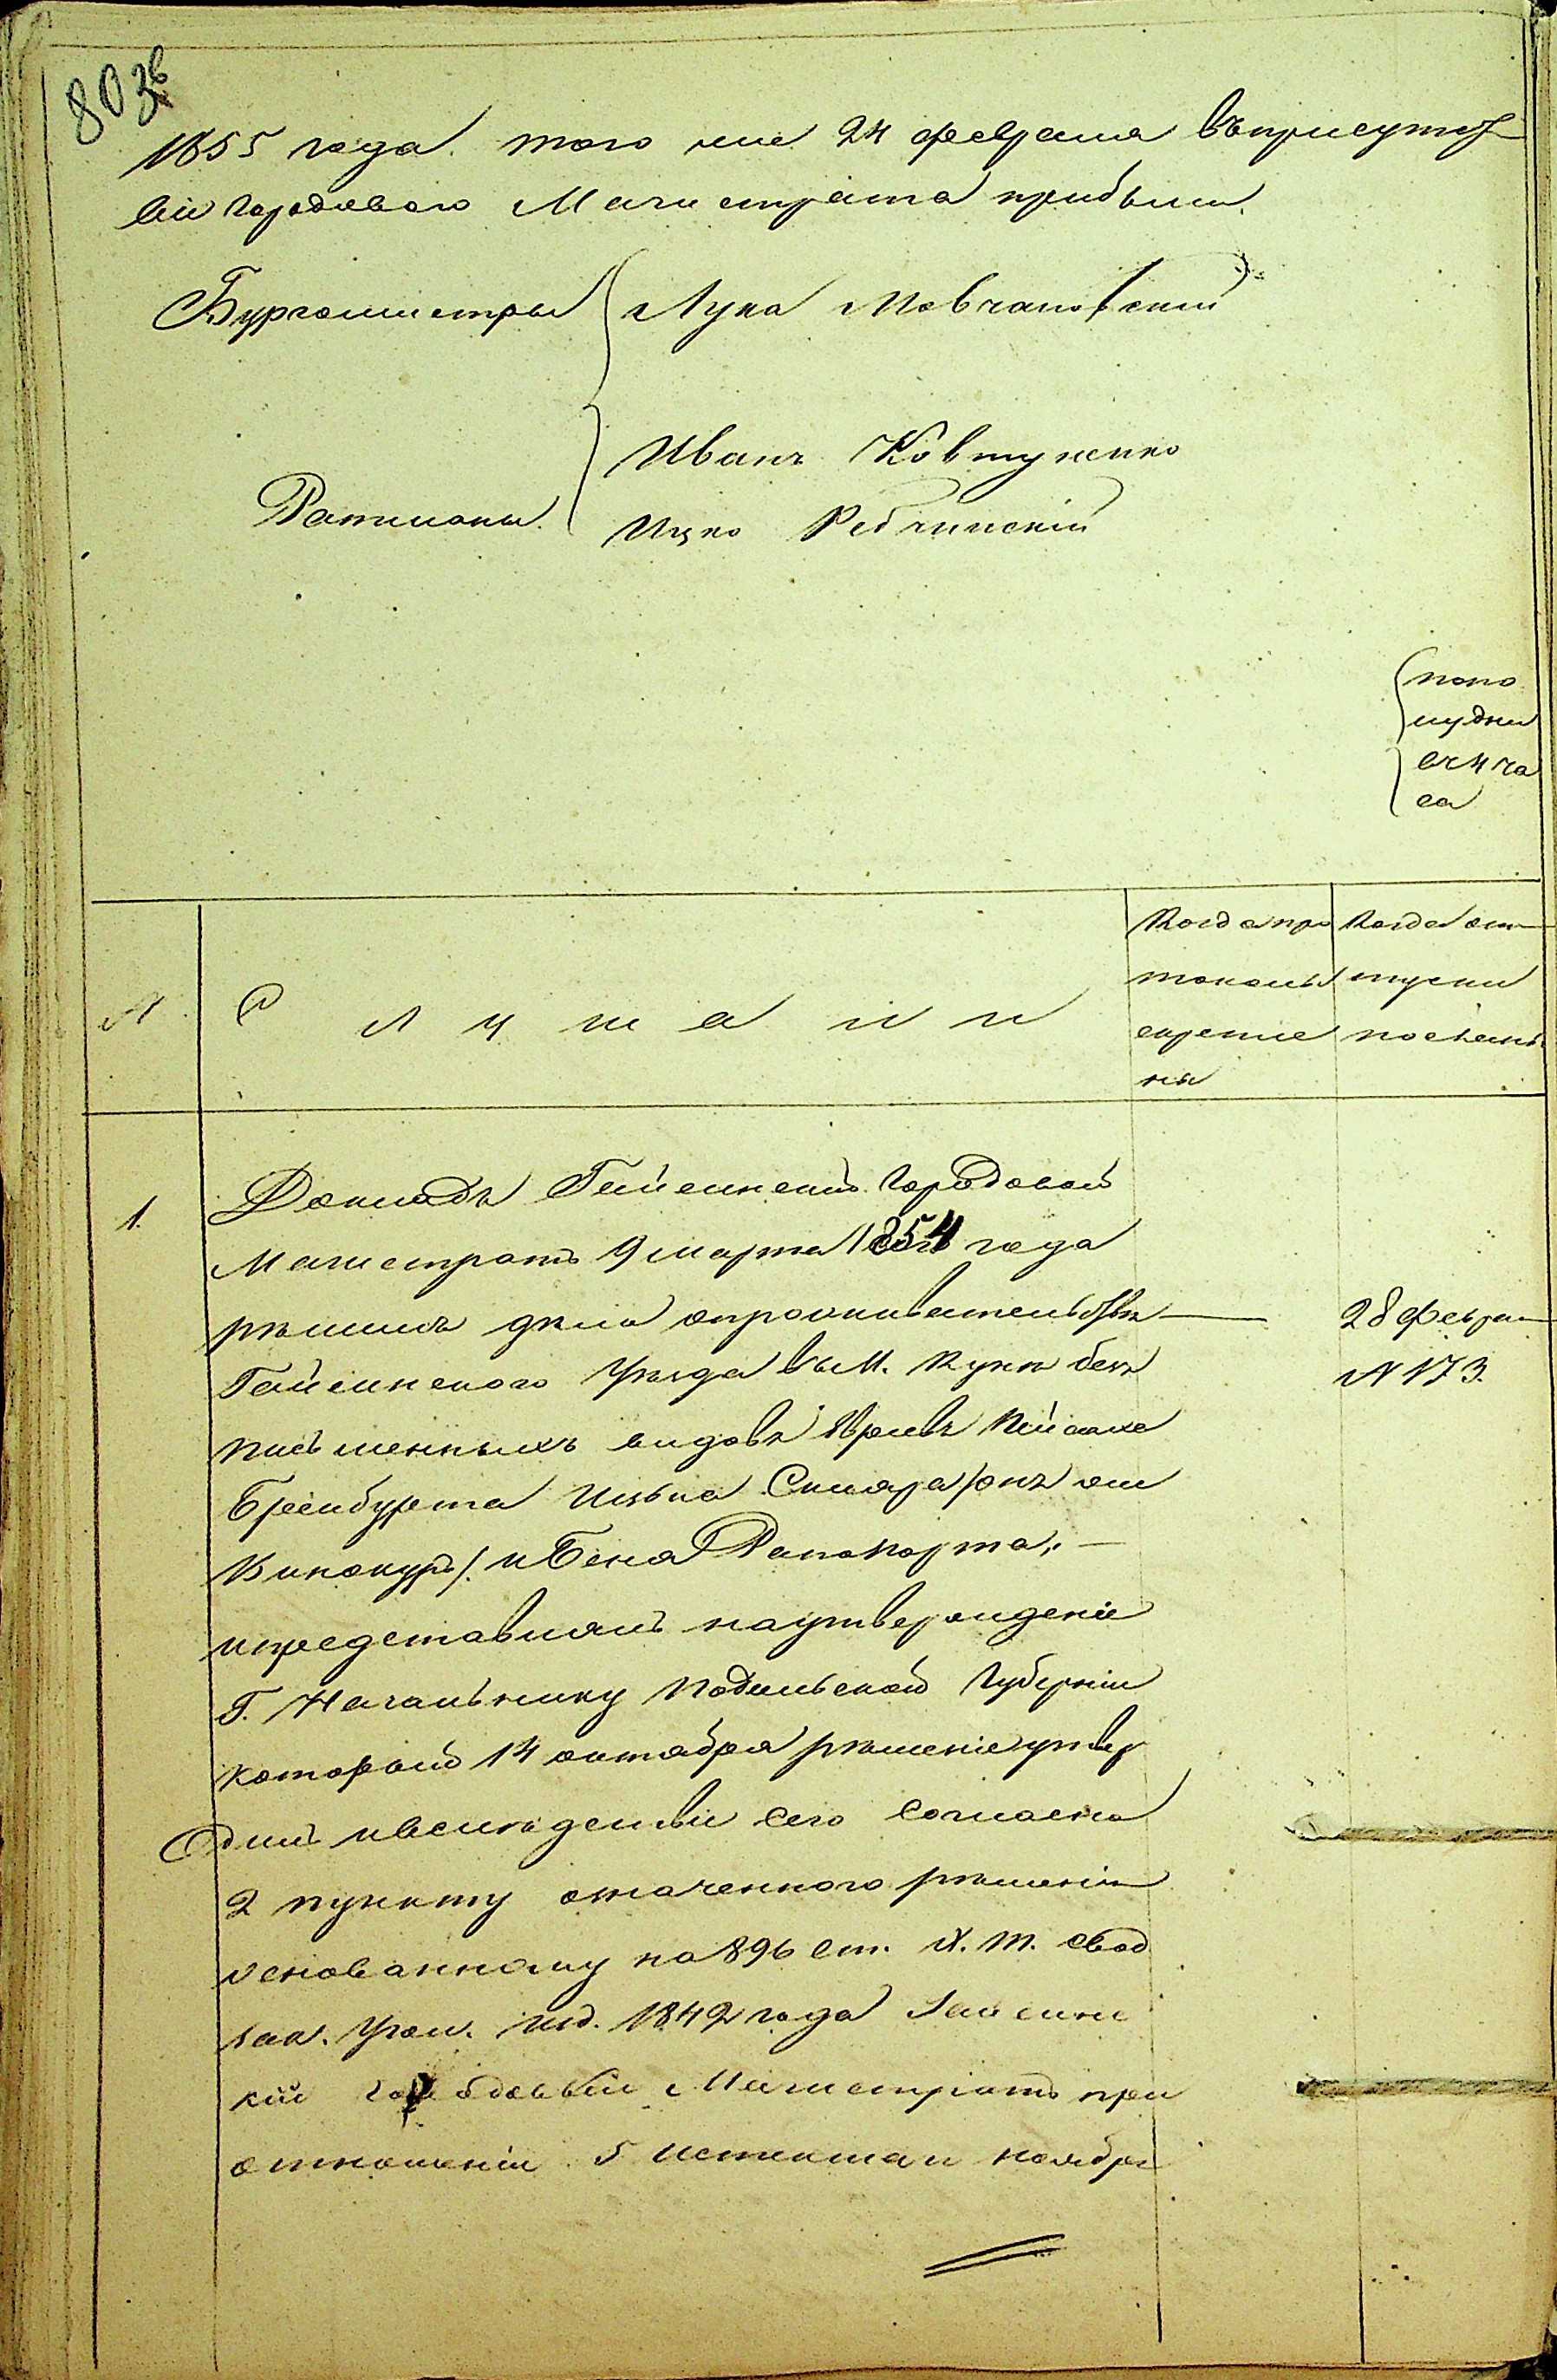 803
1855 года того же 24 февраля въ присутст
віи Городоваго Магистрата прибыли
Бургомистры Лука Мовчановскій
Иванъ Ковтуненко
Ратманы
Ицко Рабчинскій
попо
лудни
въ 4 ча
са
№
Слушали
Когда про
токолы
скрепле
ны
Когда от
пуски
посланы
1.
Докладъ Гайсинскій Городовой
Магистратъ 9 марта 1854 года
решилъ дело о проживательствѣ
Гайсинского Уезда въ М. Куне безъ
письменныхъ видовъ Евреевъ
Бреибурта Ицька Скляра /онъ же
Винокуръ/ и Бена Рапопорта, —
и представилъ на утвержденіе
Г. Начальнику Подольской Губерніи
который 14 октября решеніе утвер
дилъ и въ следствіи сего согласно
2 пункту означенного решенія
основанному на 896 ст. Х. т. свод
зак. Угол. изд. 1842 года Гайсинс
кій Городовый Магистратъ при
отношеніи 5 истекшаи ноября
28 Феврал
№ 173.